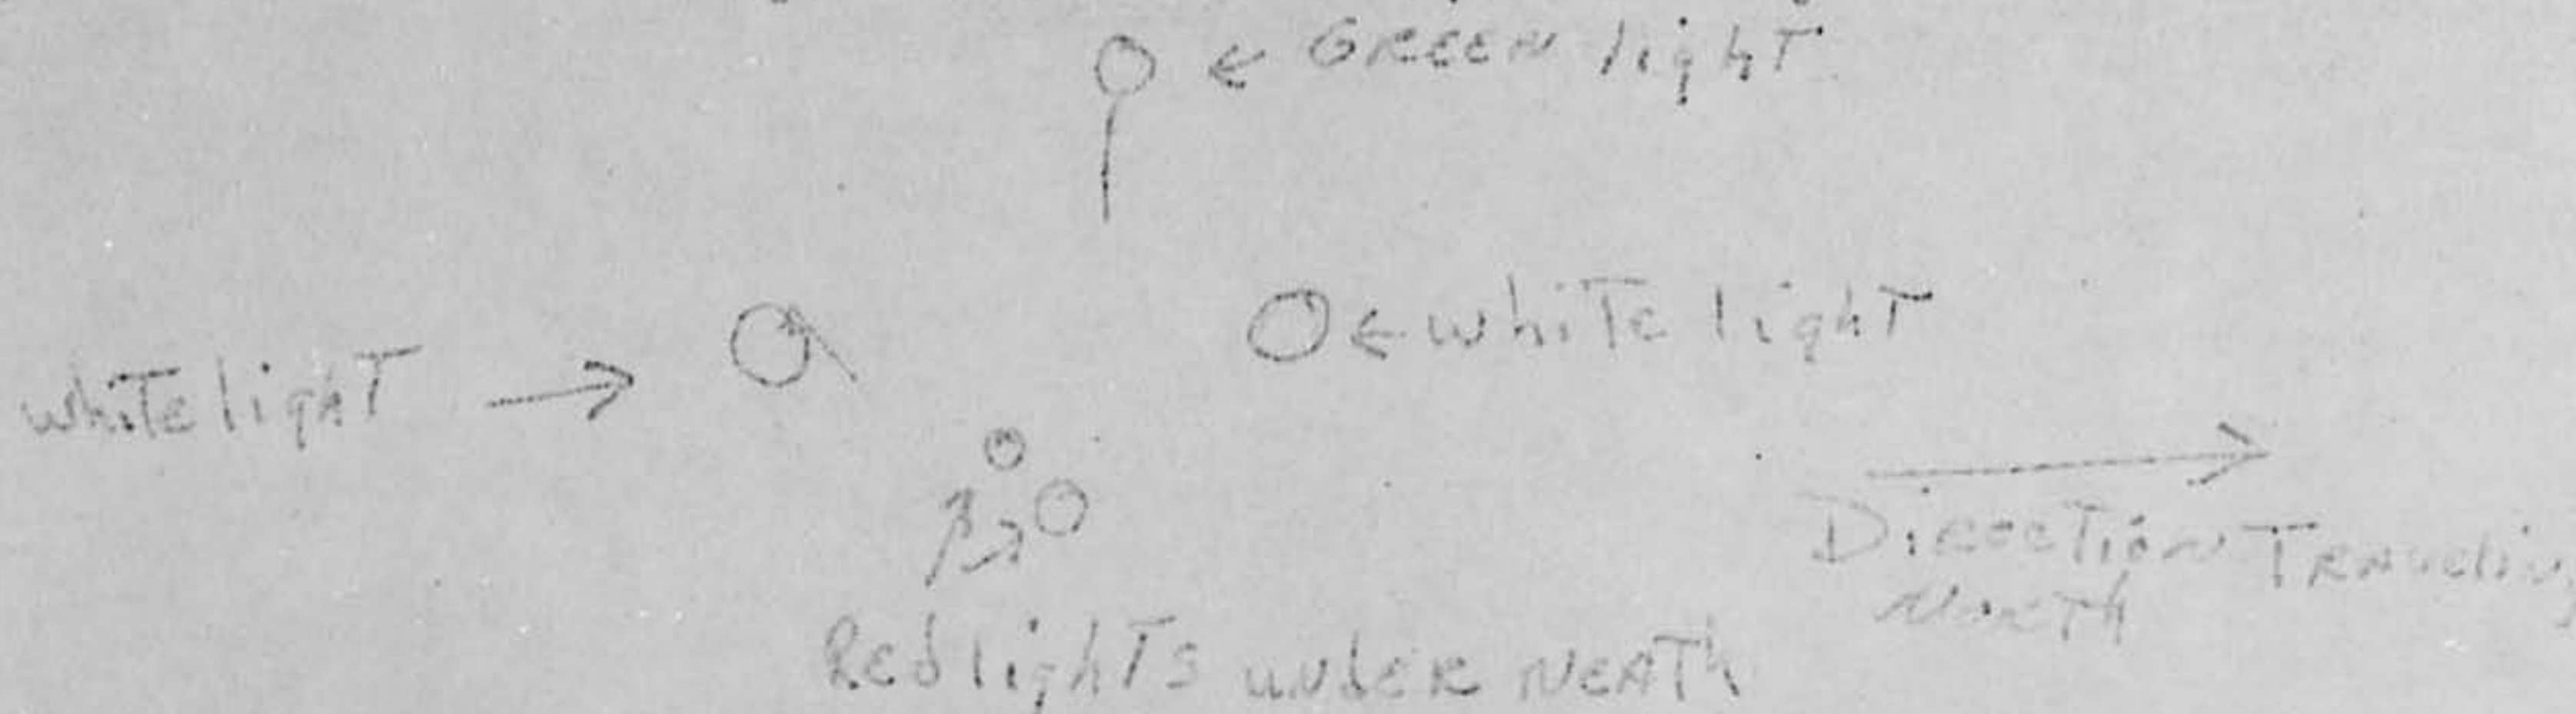 GREEN light
white light
white light
Direction Traveling
North
Red lights under neath